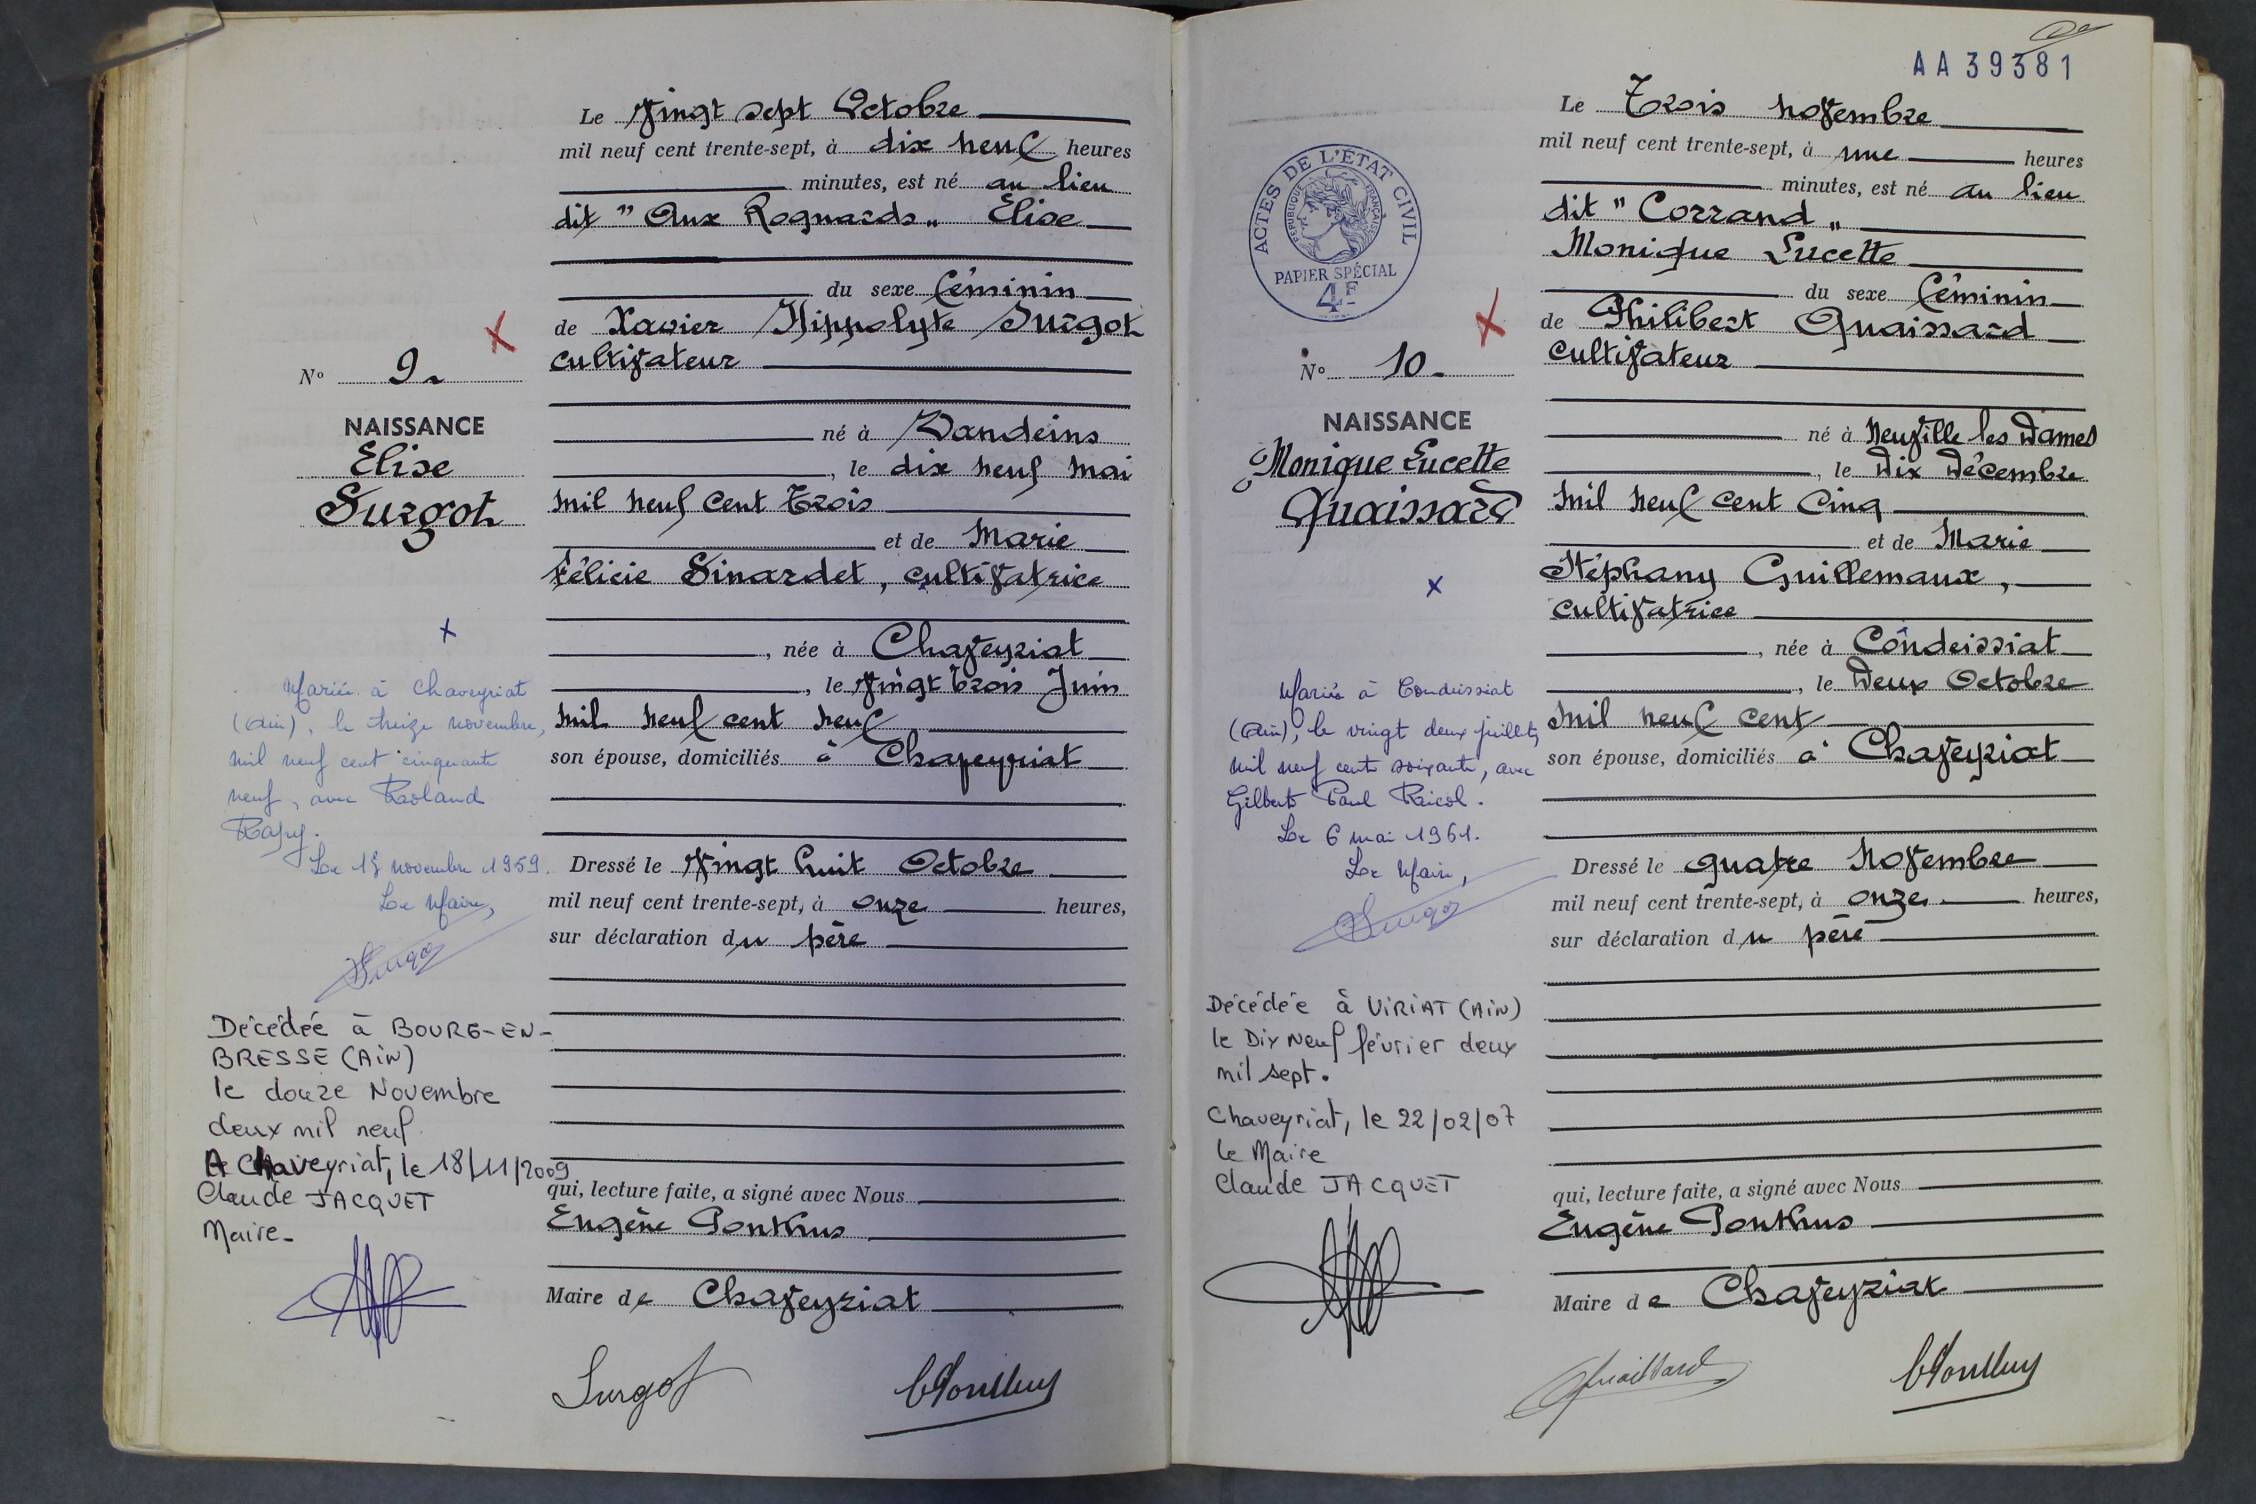 Le Vingt sept Octobre
mil neuf cent trente-sept, à dix neuf heures
minutes, est né au lieu
dit "Aux Rognards" Elise
du sexe féminin
de Xavier Hippolyte Surgot
cultivateur
né à Vandeins
, le dix neuf mai
mil neuf cent trois
et de Marie
Félicie Sinardet, cultivatrice
, née à Chaveyriat
, le Vingt trois Juin
mil neuf cent neuf
son épouse, domiciliés à Chaveyriat
Dressé le Vingt huit Octobre
mil neuf cent trente-sept, à onze heures,
sur déclaration du père
qui, lecture faite, a signé avec Nous
Eugène Ponthus
Maire de Chaveyriat
Surgot
Ponthus
No 9
NAISSANCE
Elise
Surgot
Mariée à Chaveyriat
(Ain), le treize novembre,
mil neuf cent cinquante
neuf, avec Roland
Le novembre 1959.
Le Maire,
Surgot
Décédée à BOURG-EN-
BRESSE (AiN)
le douze Novembre
deux mil neuf.
A Chaveyriat, le 18/11/2009
Claude JACQUET
Maire
AA39381
Le Trois novembre
mil neuf cent trente-sept, à une heures
minutes, est né au lieu
dit "Corrand"
Monique Lucette
du sexe féminin
de Philibert Quaissard
cultivateur
né à Neuville les Dames
, le Dix Décembre
mil neuf cent cinq
et de Marie
Stéphany Guillemaux,
cultivatrice
, née à Condeissiat
, le Deux Octobre
mil neuf cent
son épouse, domiciliés à Chaveyriat
Dressé le quatre Novembre
mil neuf cent trente-sept, à onze heures,
sur déclaration du père
qui, lecture faite, a signé avec Nous
Eugène Ponthus
Maire de Chaveyriat
Quaissard
Ponthus
ACTES DE L'ÉTAT CIVIL
RÉPUBLIQUE FRANÇAISE
PAPIER SPÉCIAL
4F
No 10
NAISSANCE
Monique Lucette
Quaissard
Mariée à Condeissiat
(Ain), le vingt deux juillet,
mil neuf cent soixante, avec
Gilbert Paul Ricol.
Le 6 mai 1961.
Le Maire,
Surgot
Décédée à ViRiAT (AiN)
le Dix Neuf février deux
mil sept.
Chaveyriat, le 22/02/07
le Maire
Claude JACQUET